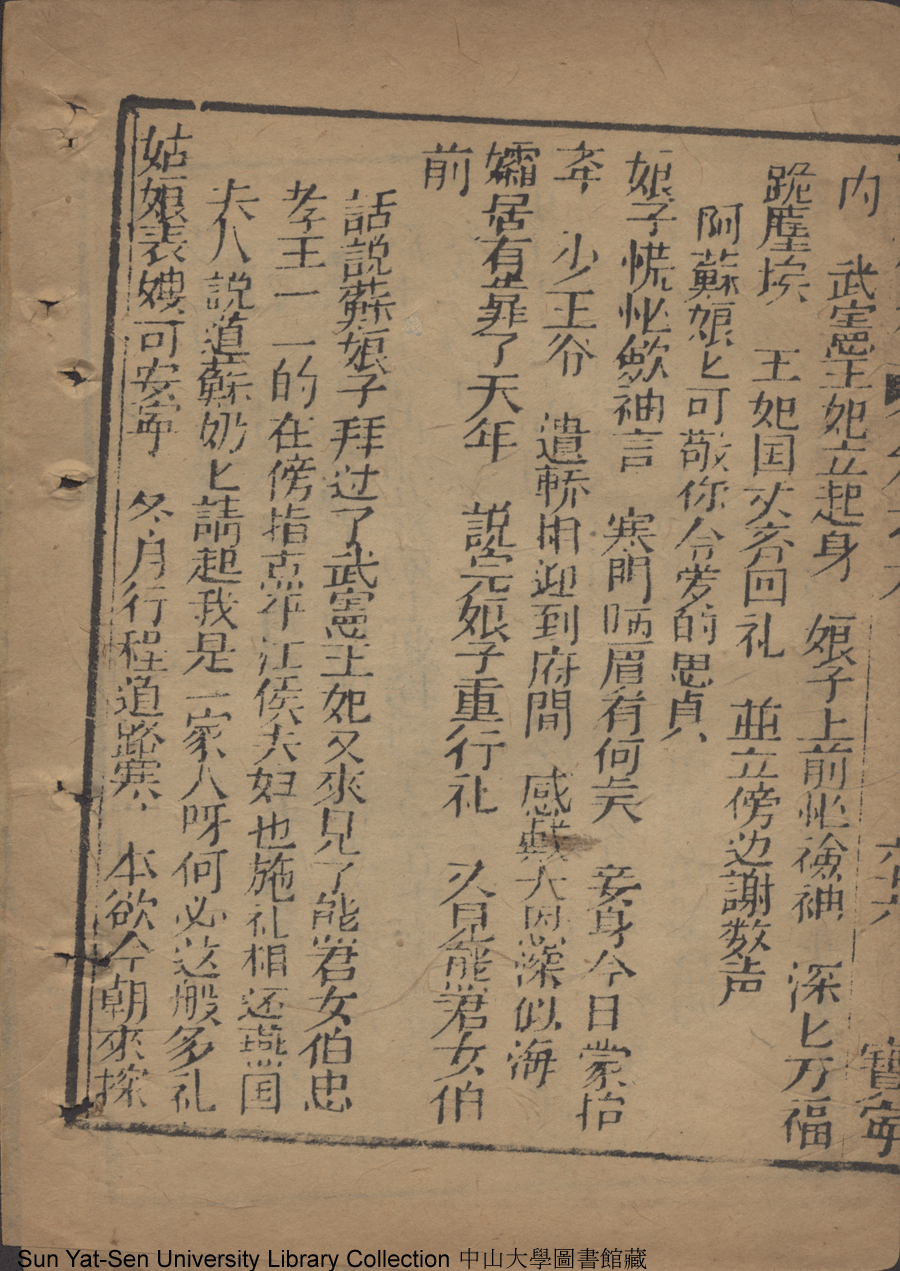 六十六 寶寧
内 武憲王妃立起身 娘子上前忙衿袖 深匕万福
跪塵埃 王妃国丈齐回礼 並立傍边謝数声
阿蘇娘匕可敬你令爱的思貞
娘子慌忙歛袖言 寒門 眉有何 妾身今日蒙抬
奉 少王爷 遣轎相迎到府間 感戴大恩深似海
孀居有靠了天年 説完娘子重行礼 又見熊君女伯
前
話説蘇娘子拜过了武憲王妃又來見了熊君女伯忠
孝王一一的在傍指点平江侯夫妇也施礼相还燕国
夫人説道蘇奶匕請起我是一家人呀何必这般多礼
姑娘表嫂可安寧 冬月行程道路寒 本欲今朝來探
Sun Yat-Sen University Library Collection 中山大學圖書館藏